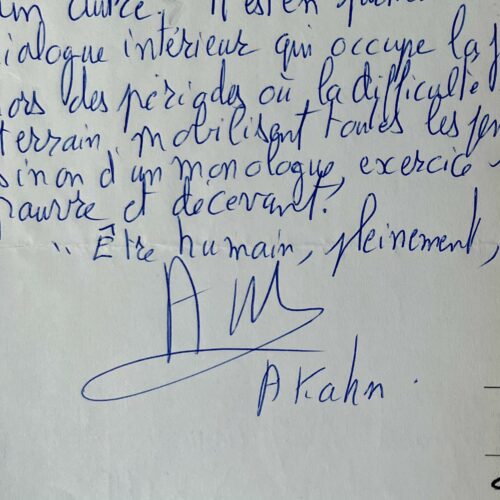 un autre. Il est en
dialogue intérieur qui occupe la
hors des périodes où la difficulté
terrain mobilisent toutes les
sinon d'un monologue, exercice
pauvre et décevant?
"Être humain, pleinement,
A Kahn.